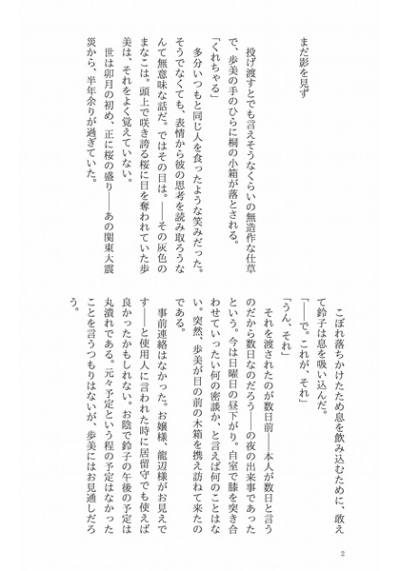 まだ影を見ず
投げ渡すとでも言えそうなくらいの無造作な仕草
で、歩美の手のひらに桐の小箱が落とされる。
「くれちゃる」
多分いつもと同じ人を食ったような笑みだった。
そうでなくても、表情から彼の思考を読み取ろうな
んて無意味な話だ。ではその目は。――その灰色の
まなこは。頭上で咲き誇る桜に目を奪われていた歩
美は、それをよく覚えていない。
世は卯月の初め、正に桜の盛り――あの関東大震
災から、半年余りが過ぎていた。
こぼれ落ちかけたため息を飲み込むために、敢え
て鈴子は息を吸い込んだ。
「――で。これが、それ」
「うん、それ」
それを渡されたのが数日前――本人が数日と言う
のだから数日なのだろう――の夜の出来事であった
という。今は日曜日の昼下がり。自室で膝を突き合
わせていったい何の密談か、と言えば何のことはな
い。突然、歩美が目の前の木箱を携え訪ねて来たの
である。
事前連絡はなかった。お嬢様、龍辺様がお見えで
す――と使用人に言われた時に居留守でも使えば
良かったかもしれない。お陰で鈴子の午後の予定は
丸潰れである。元々予定という程の予定はなかった
ことを言うつもりはないが、歩美にはお見通しだろ
う。
2